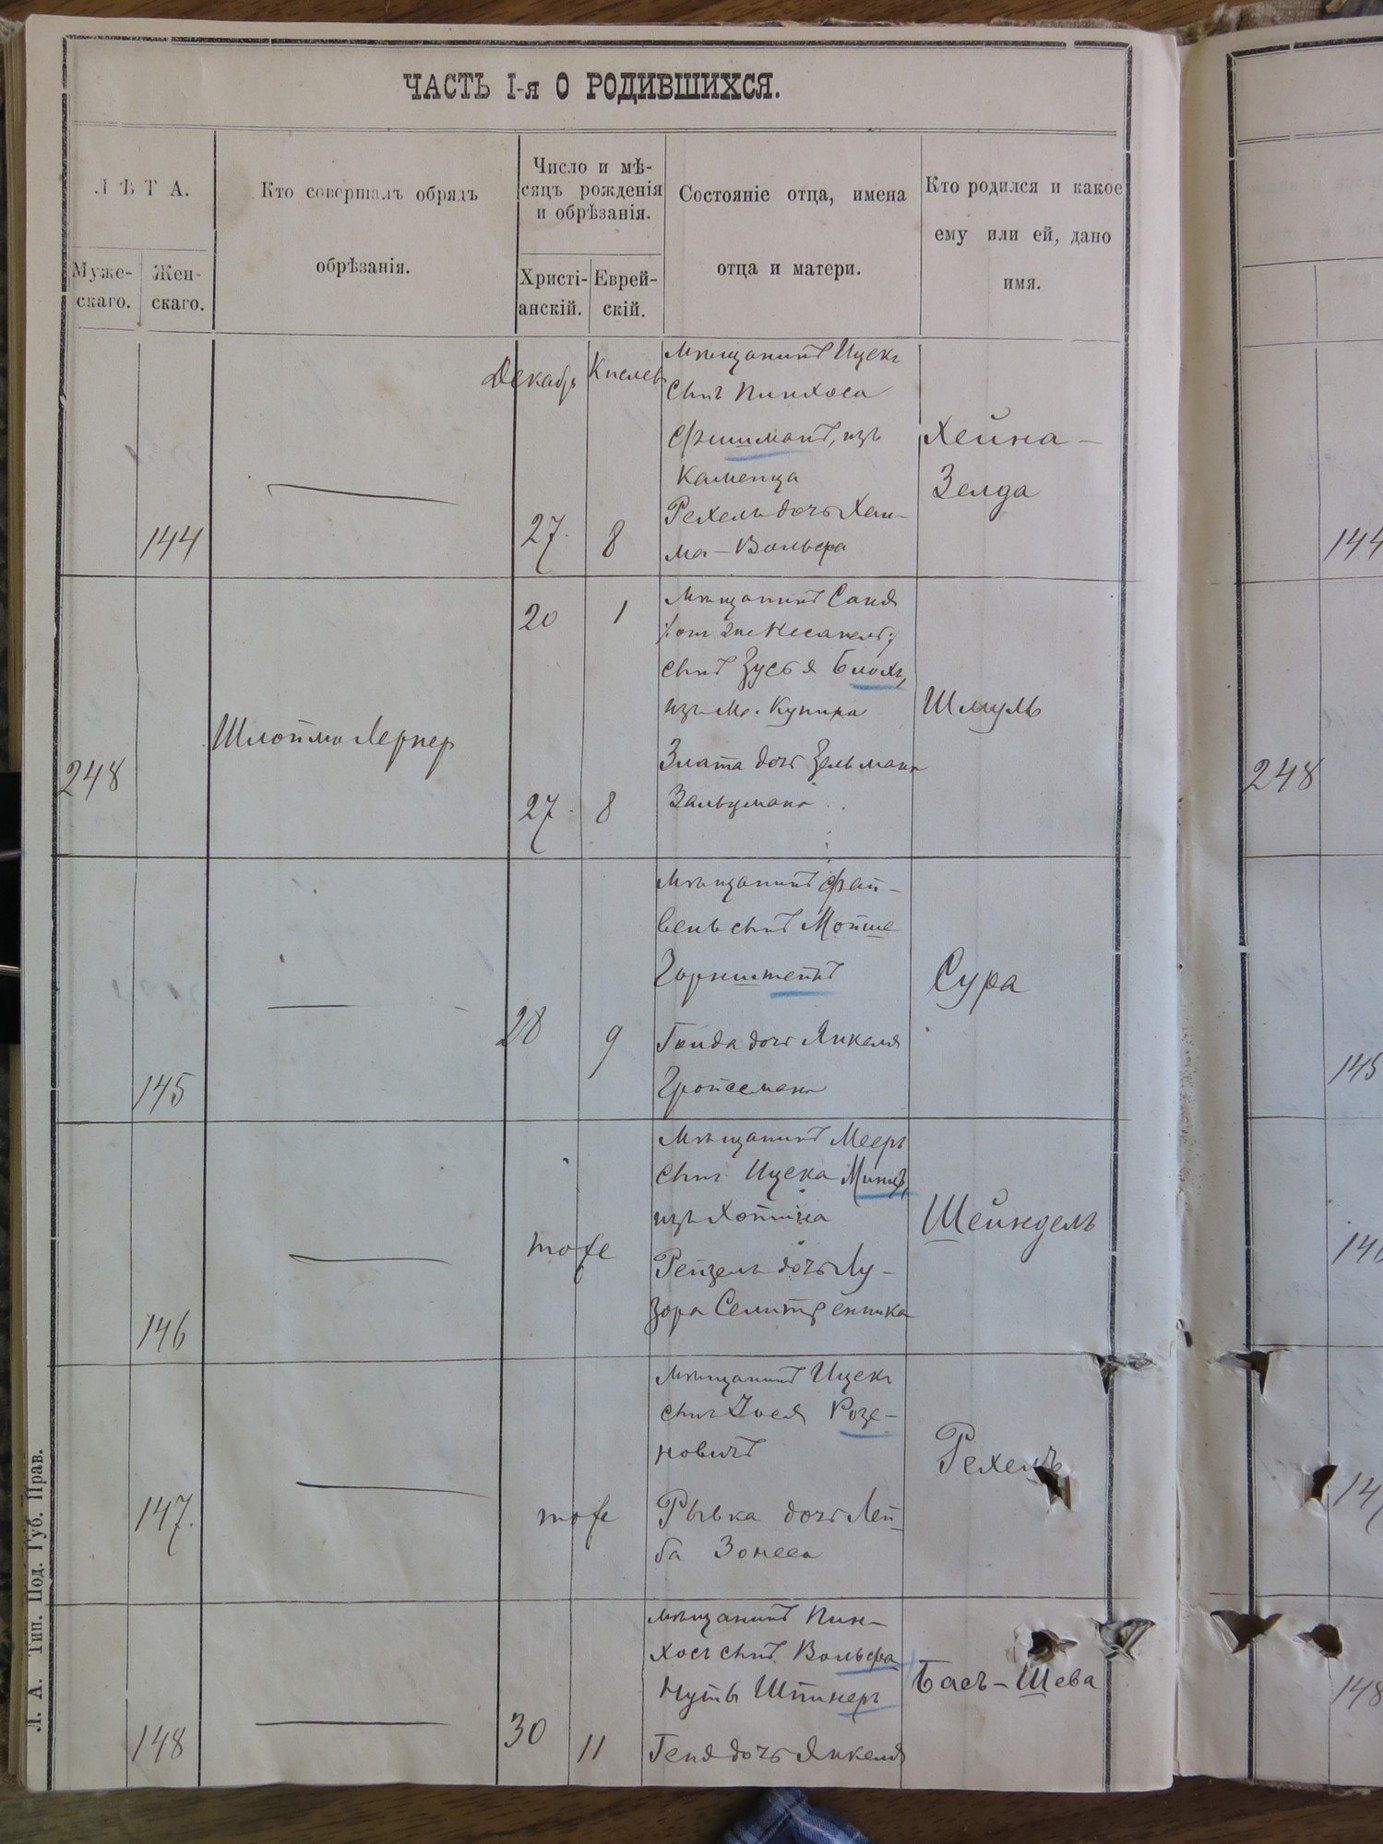 ЧАСТЬ I-я О РОДИВШИХСЯ.
ЛѢТА.
Муже-
скаго.
Жен-
скаго.
Кто совершалъ обрядъ
обрѣзанія.
Число и мѣ-
сяцъ рожденія
и обрѣзанія.
Христі-
анскій.
Еврей-
скій.
Состояніе отца, имена
отца и матери.
Кто родился и какое
ему или ей, дано
имя.
144
Декабрь
27
Кислевъ
8
Мѣщанинъ Ицекъ
сынъ Пинхоса
Фишманъ, изъ
Каменца
Рехель дочь Хаи-
ма-Вольфа
Хейна-
Зелда
248
Шлойма Лернер
20
27
1
8
Мѣщанинъ
сынъ Зусья Блохъ,
изъ м. Купина
Злата дочь Зельмана
Зальцмана
Шмуль
145
28
9
Мѣщанинъ Фай-
вель сынъ Мойше
Горнштейнъ
Гольда дочь Янкеля
Гройсмана
Сура
146
тоже
Мѣщанинъ Мееръ
сынъ Ицека Минцъ,
изъ Хотина
Рейзель дочь Лу-
зора Селитренника
Шейндель
147.
тоже
Мѣщанинъ Ицекъ
сынъ Розе-
новичъ
Рывка дочь Лей-
ба
Рехель
148
30
11
Мѣщанинъ Пин-
хосъ сынъ Вольфа
Нуты
Геня дочь Янкеля
Басъ-Шева
Л. А. Тип. Под. Губ. Прав.
144
248
145
146
147
148